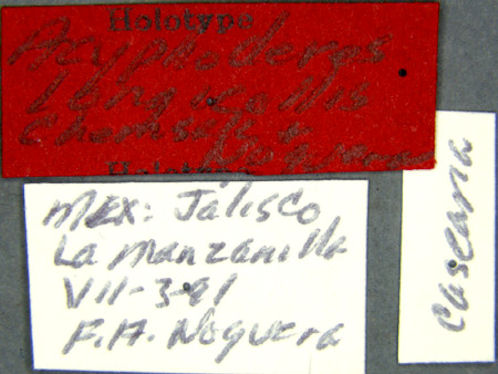 Holotype
Acyphoderes
longicollis
Chemsak &
Noguera
Holotype
MEX: Jalisco
La Manzanilla
VII-3-91
F.A. Noguera
Casearia